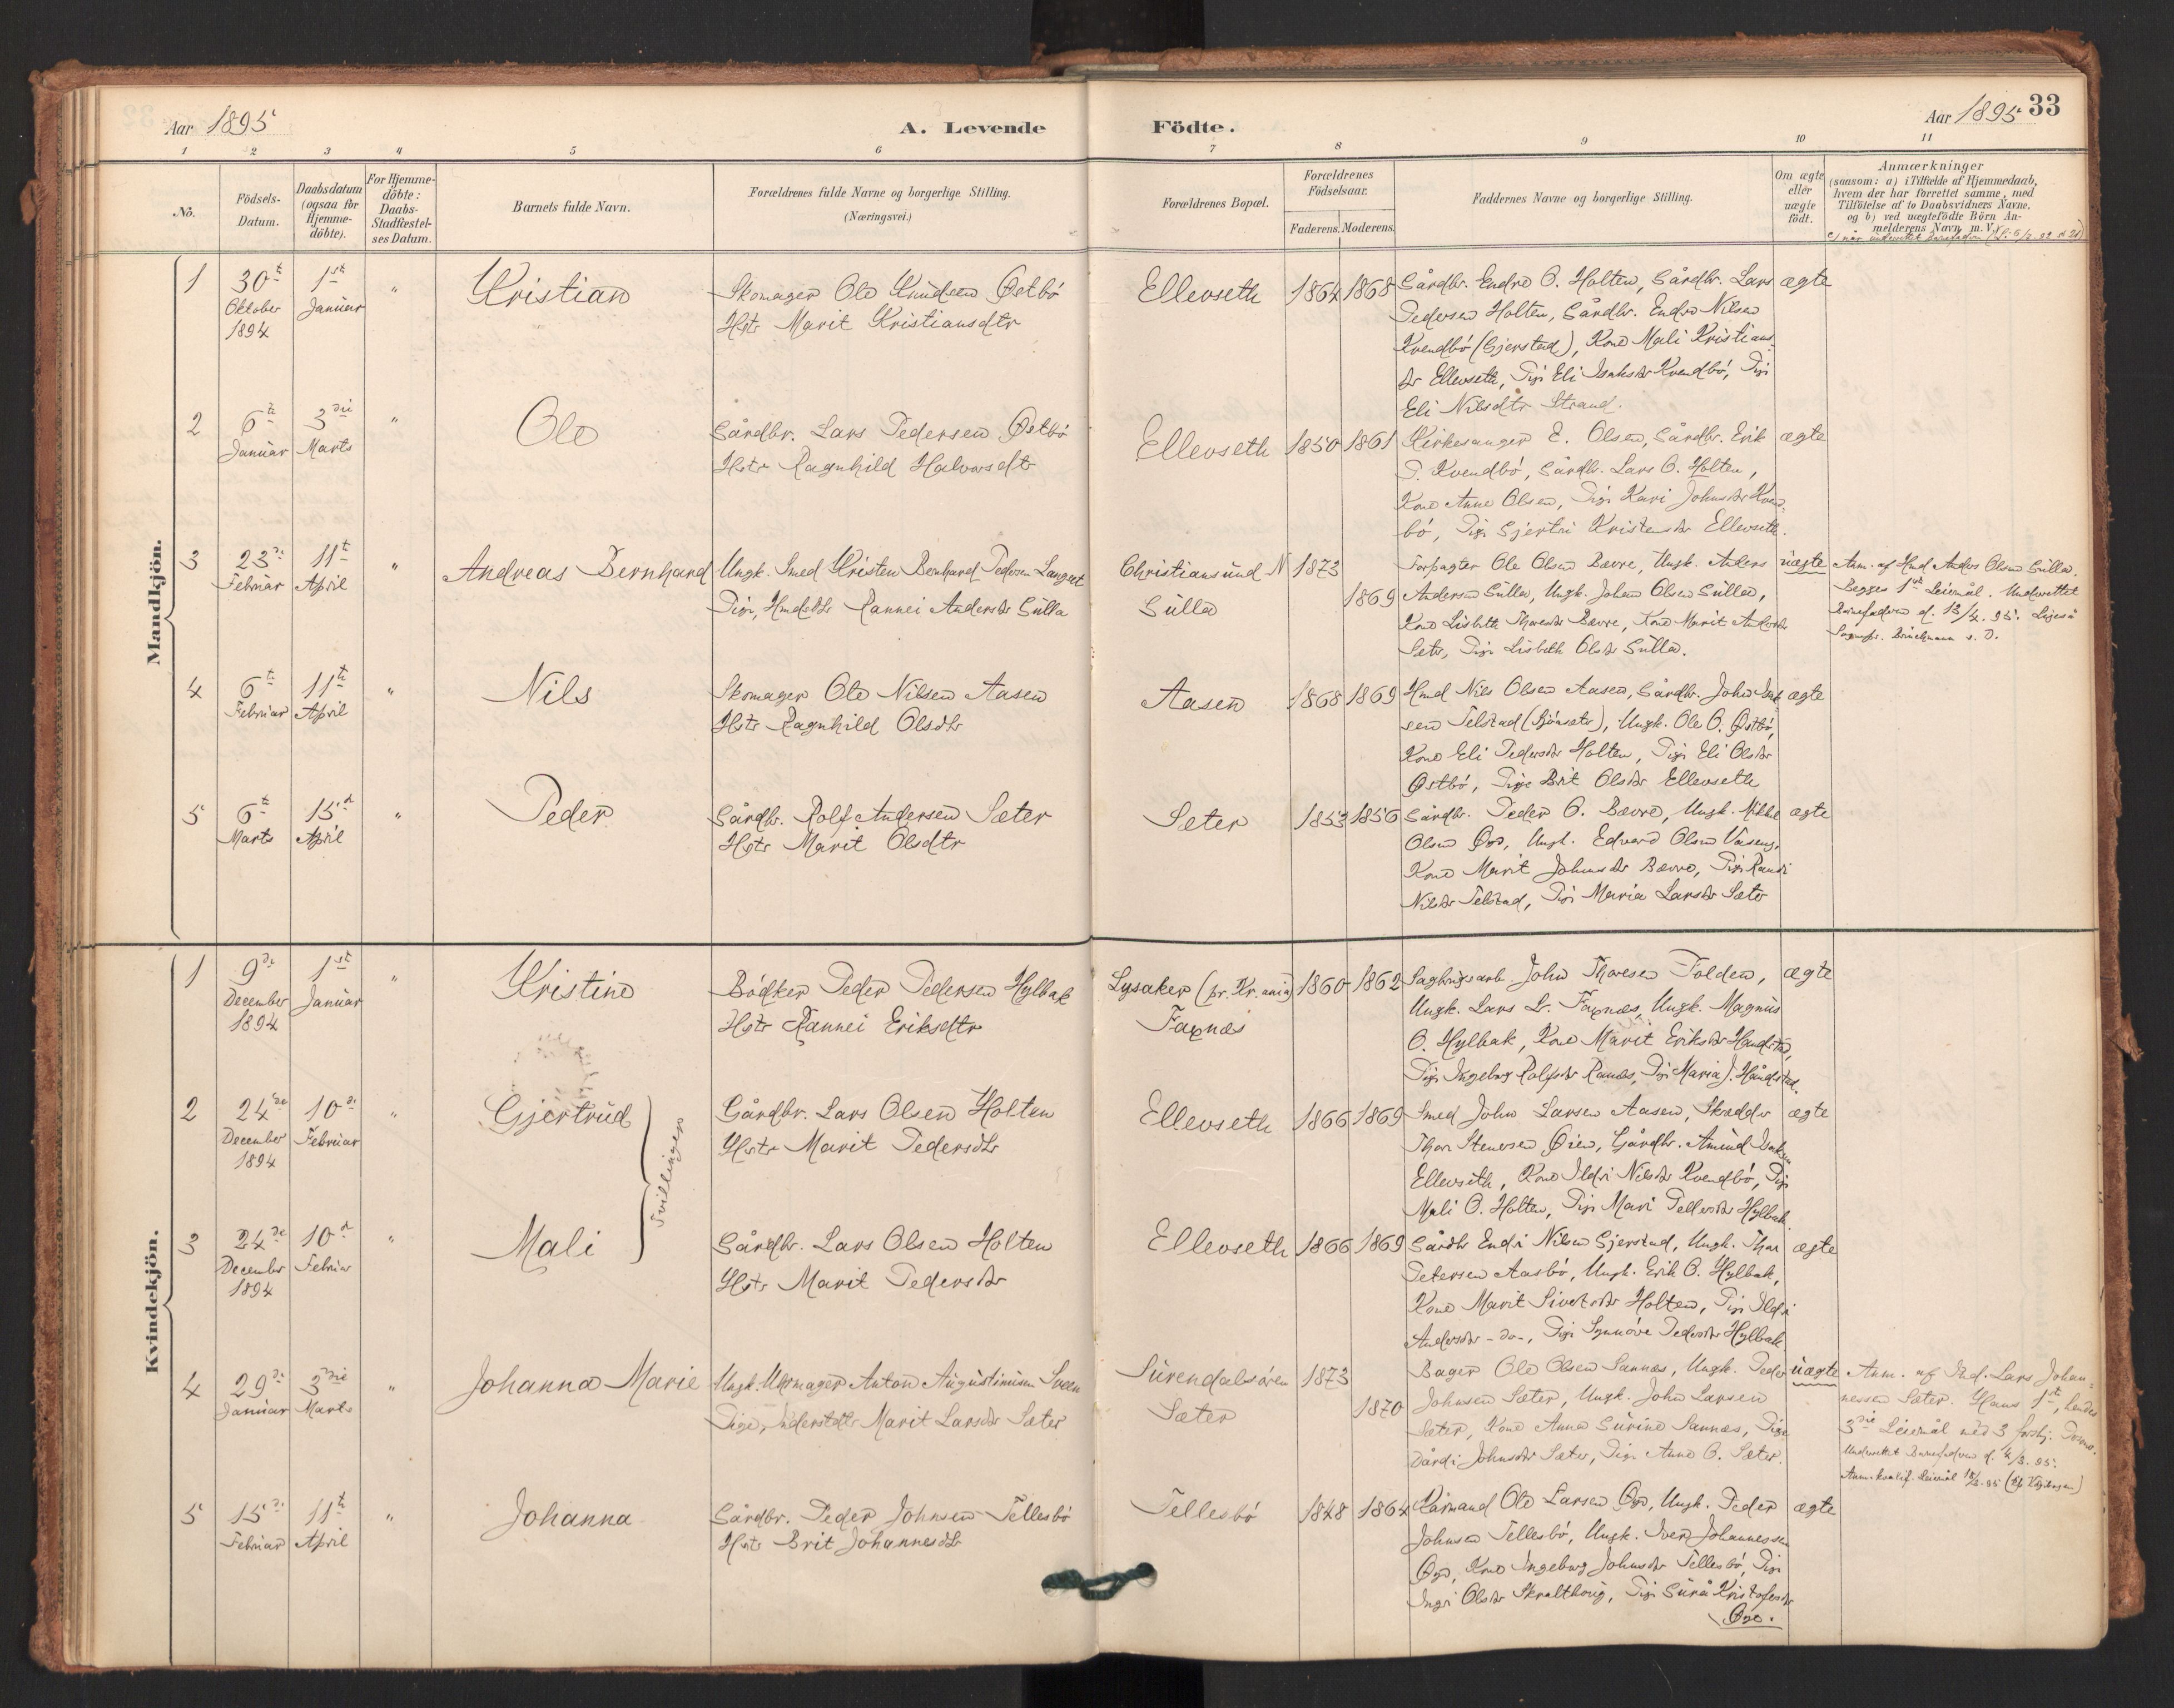 Aar 1895
A. Levende
Födte.
Aar 1895
33
1 2 3 4 5 6 7 8 9 10 11
No.
Födsels-
Datum.
Daabsdatum
(ogsaa for
Hjemme-
döbte).
For Hjemme-
döbte:
Daabs-
Stadfæstel-
ses Datum.
Barnets fulde Navn.
Forældrenes fulde Navne og borgerlige Stilling.
(Næringsvei.)
Forældrenes Bopæl.
Forældrenes
Födselsaar.
Faderens. Moderens.
Faddernes Navne og borgerlige Stilling.
Om ægte
eller
uægte
födt.
Anmærkninger
(saasom: a) i Tilfælde af Hjemmedaab,
hvem der har forrettet samme, med
Tilföielse af to Daabsvidners Navne,
og b) ved uægtefödte Börn An-
melderens Navn m. V.)
Mandkjön.
1
30t
Oktober
1894
1st
Januar
"
Kristian
Skomager Ole Knudsen Østbö
Hstr Marit Kristiansdtr
Ellevseth
1864 1868
Gårdbr. Endre O. Holten, Gårdbr. Lars
Pedersen Holten, Gårdbr. Endre Nilsen
Kvendbö (Gjerstad), Kone Mali Kristians-
dtr Ellevseth, Pige Eli Isaksdtr Kvendbö, Pige
Eli Nilsdtr Strand.
ægte
2
6te
Januar
3die
Marts
"
Ole
Gårdbr. Lars Pedersen Østbö
Hstr Ragnhild Halvorsdtr
Ellevseth
1850 1861
Kirkesanger E. Olsen, Gårdbr. Erik
P. Kvendbö, Gårdbr. Lars O. Holten,
Kone Anne Olsen, Pige Kari Johnsdtr Kvend-
bö, Pige Gjertru Kristensdtr Ellevseth.
ægte
3
23de
Februar
11t
April
"
Andreas Bernhard
Ungk. Smed Kristen Bernhard Pedersen Langset
Pige, Hmdsdtr Rannei Andersdtr Gulla
Christiansund N
Gulla
1873
1869
Forpagter Ole Olsen Bævre, Ungk. Anders
Andersen Gulla, Ungk. Johan Olsen Gulla,
Kone Lisbeth Thoresdtr Bævre, Kone Marit Andersdtr
Sæter, Pige Lisbeth Olsdtr Gulla.
uægte
Anm. af Hmd Anders Olsen Gulla.
Begges 1ste Leiermål. Underrettet
Barnefaderen d. 13/4. 95.
4
6te
Februar
11te
April
"
Nils
Skomager Ole Nilsen Aasen
Hstr Ragnhild Olsdtr
Aasen
1868 1869
Hmd Nils Olsen Aasen, Gårdbr. John Isak-
sen Telstad, Ungk. Ole O. Østbö,
Kone Eli Pedersdtr Holten, Pige Eli Olsdtr
Østbö, Pige Brit Olsdtr Ellevseth
ægte
5
6t
Marts
15d
April
"
Peder
Gårdbr. Rolf Andersen Sæter
Hstr Marit Olsdtr
Sæter
1853 1856
Gårdbr. Peder O. Bævre, Ungk. Mikkel
Olsen Øye, Ungk. Edvard Olsen
Kone Marit Johnsdtr Bævre, Pige Randi
Nilsdtr Telstad, Pige Maria Larsdtr Sæter
ægte
Kvindekjön.
1
9de
December
1894
1st
Januar
"
Kristine
Bödker Peder Pedersen Hylbak
Hstr Rannei Eriksdtr
Lysaker (pr. Kr.ania)
Faxnæs
1860 1862
Sagbrugsarb. John Thoresen Folden,
Ungk. Lars L. Faxnæs, Ungk. Magnus
O. Hylbak, Kone Marit Eriksdtr Handstad,
Pige Ingeborg Rolfsdtr Ranæs, Pige Maria J. Håndstad.
ægte
2
24de
December
1894
10de
Februar
"
Gjertrud
Tvillinger
Gårdbr. Lars Olsen Holten
Hstr Marit Pedersdtr
Ellevseth
1866 1869
Smed John Larsen Aasen, Skrædder
Thore Stenersen Øien, Gårdbr. Amund Isaksen
Ellevseth, Kone Ildri Nilsdtr Kvendbö, Pige
Mali O. Holten, Pige Mari Pedersdtr Hylbak.
ægte
3
24de
December
1894
10d
Februar
"
Mali
Gårdbr. Lars Olsen Holten
Hstr Marit Pedersdtr
Ellevseth
1866 1869
Gårdbr Endri Nilsen Gjerstad, Ungk. Thor
Petersen Aasbö, Ungk. Erik O. Hylbak,
Kone Marit Sivertsdtr Holten, Pige Ildri
Andersdtr -do-, Pige Synnöve Pedersdtr Hylbak
ægte
4
29de
Januar
3die
Marts
"
Johanna Marie
Ungk. Uhrmager Anton Augustinius Sveen
Pige, Inderstdtr Marit Larsdtr Sæter
Surendalsören
Sæter
1873
1870
Bager Ole Olsen Sannæs, Ungk. Peder
Johnsen Sæter, Ungk. John Larsen
Sæter, Kone Anna Gurine Sannæs, Pige
Dårdi Johnsdtr Sæter, Pige Anne O. Sæter.
uægte
Anm. af Ind. Lars Johan-
nessen Sæter. Hans 1st, hendes
3die Leiermål med 3 forskj.
Underrettet Barnefaderen d. 4/3. 95.
5
15de
Februar
11te
April
"
Johanna
Gårdbr. Peder Johnsen Tellesbö
Hstr Brit Johannesdtr
Tellesbö
1848 1864
Kårmand Ole Larsen Øye, Ungk. Peder
Johnsen Tellesbö, Ungk. Iver Johannessen
Øye, Kone Ingeborg Johnsdtr Tellesbö, Pige
Ingri Olsdtr Skralthoug, Pige Gurå Kristofersdtr
Øye.
ægte